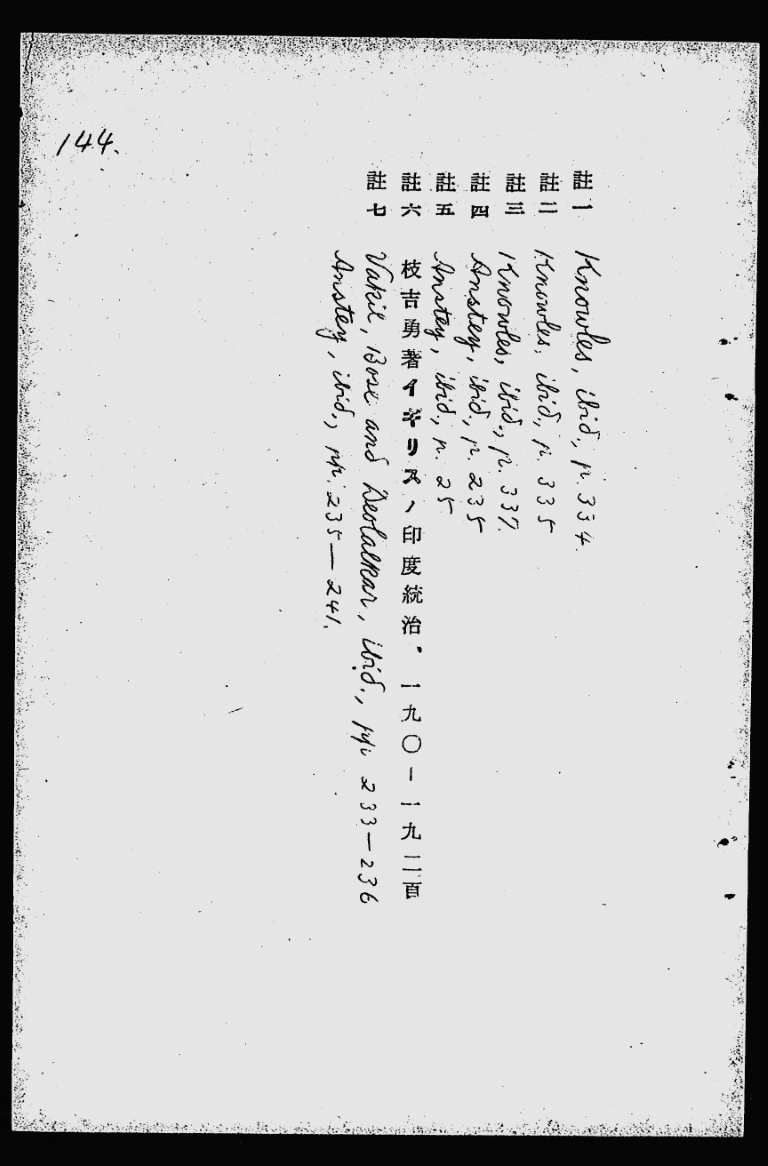 144.
註一 Knowles, ibid., p. 334.
註二 Knowles, ibid., p. 335
註三 Knowles, ibid., p. 337.
註四 Anstey, ibid., p. 235
註五 Anstey, ibid., p. 25
註六 枝吉勇著イギリスノ印度統治。一九〇-一九二頁
註七 Vakil, Bose and Deolalkar, ibid., pp. 233—236
Anstey, ibid., pp. 235—241.